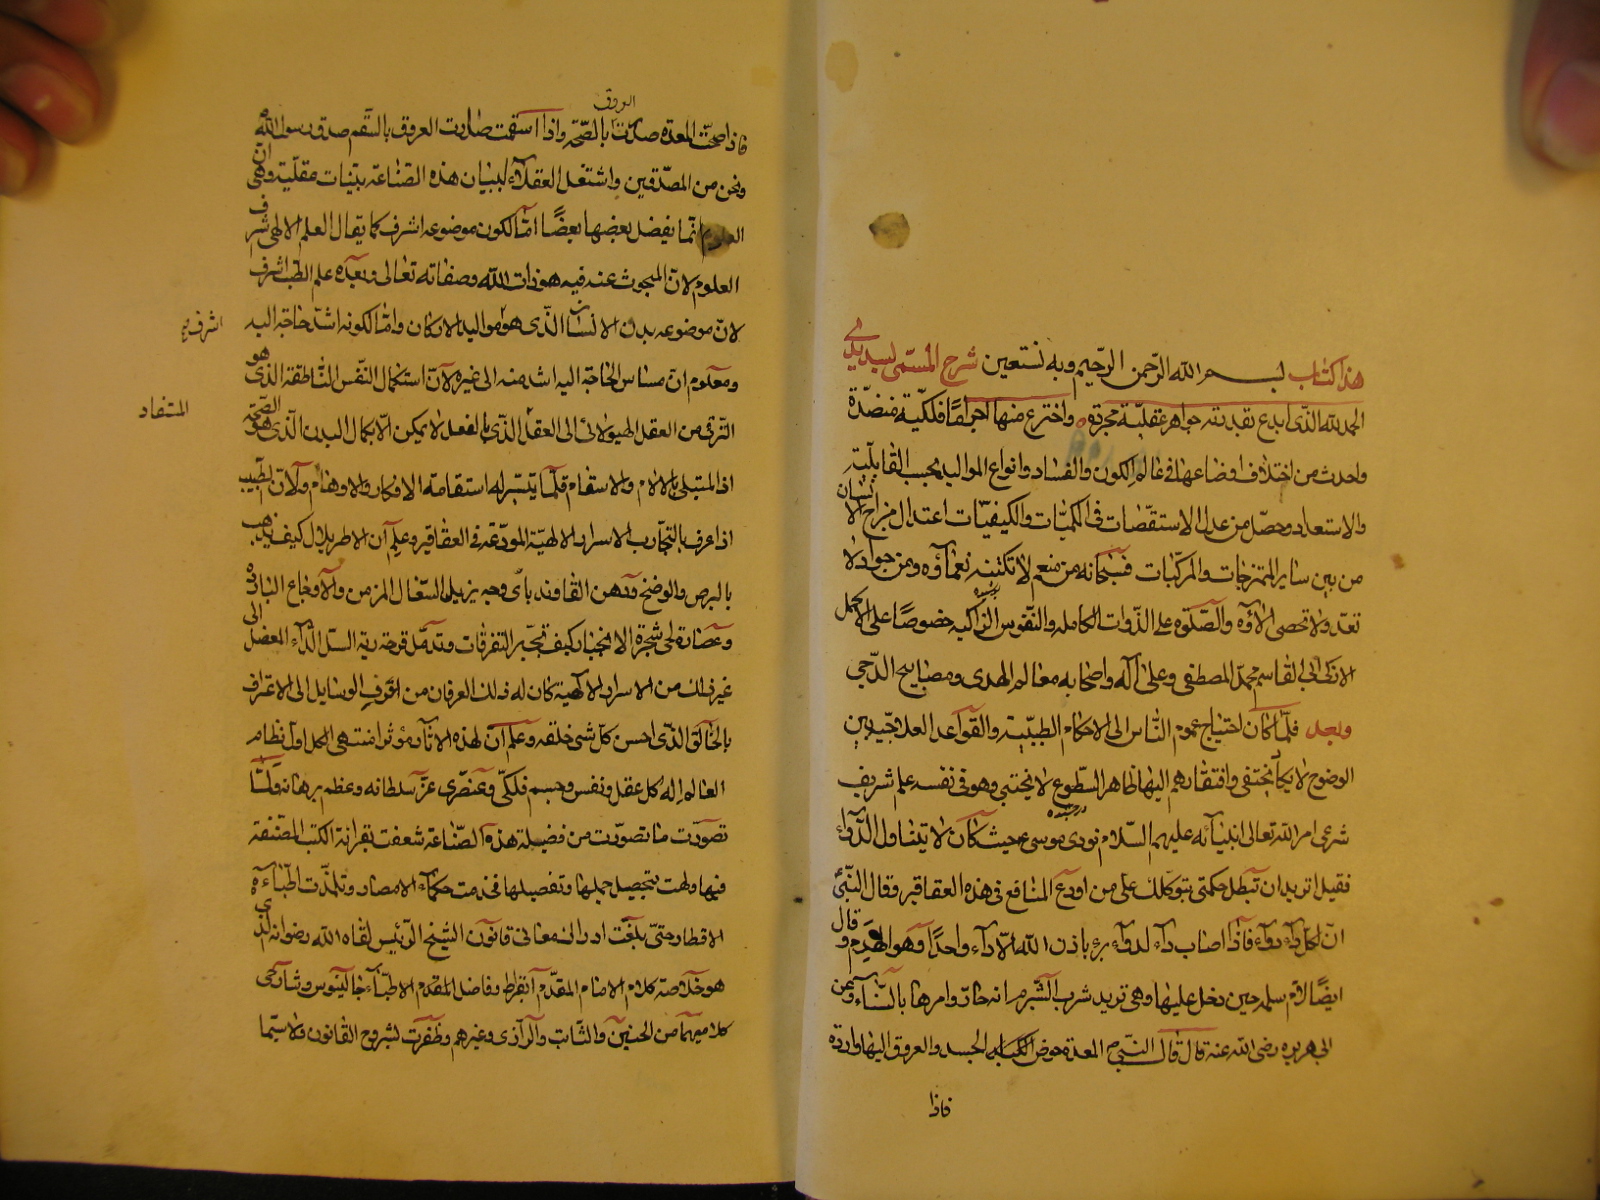 هذا كتاب بسم الله الرحمن الرحيم وبه نستعين شرح المسمى بسديدي
الحمد لله الذى ابدع بقدرته جواهر عقلية مجردة واخترع منها اجراما فلكية منضدة
واحدث من اختلاف اوضاعها فى عالم الكون والفساد وانواع المواليد بحسب القابليت
والاستعداد وحصل من عدل الاستقصات فى الكميات والكيفيات اعتدال مزاج الانسان
من بين ساير الممتزجات والمركبات فسبحانه من منعم لا تكتنه نعمآؤه ومن جواد لا
تعد ولا تحصى آلاؤه والصلوة على الذوات الكامله والنفوس الزاكيه خصوصًا على الاكمل
الازكى ابى القاسم محمد المصطفى وعلى آله واصحابه معالم الهدى ومصابيح الدجى
وبعد فلما كان احتياج عموم الناس الى الاحكام الطبيّة والقواعد العلاجية بين
الوضوح لا يكاد يختفى وافتقارهم اليها ظاهر السطوع لا يختبى وهو فى نفسه علم شريف
شرعى امر الله تعالى انبيآئه عليهم السلام نودى موسى ع حيث كان لا يتناول الدوآء
فقيل اتريد ان تبطل حكمتى بتوكلك على من اودع المنافع فى هذه العقاقير وقال النبى
ان لكل دآء دوآء فاذا اصاب دآء لدوآء برء باذن الله الا دآء واحدًا وهو الهرم وقال
ايضًا لام سلمه حين دخل عليها وهى تريد شرب الشبرم انه حار وامرها بالسنآء وعن
ابى هريره رضى الله عنه قال قال النبى م المعدة حوض الجسد والعروق اليها وارده
فاذا
العروق
فاذا صحت المعده صارت بالصحة واذا اسقمت صارت العروق بالسقم صدق رسول الله
ونحن من المصدقين واشتغل العقلآء لبنيان هذه الصناعة ببينات عقلية وهى ان
العلوم انما يفضل بعضها بعضًا اما لكون موضوعه اشرف كما يقال العلم الالهى اشرف
العلوم لان المبحوث عنه فيه هو ذات الله وصفاته تعالى وبعده علم الطب اشرف
لان موضوعه بدن الانسان الذى هو مواليد الاركان واما لكونه اشد حاجة اليه
اشرف
ومعلوم ان مساس الحاجة اليه اشد منه الى غيره لان استكمال النفس الناطقة الذى هو
الترقى من العقل الهيولانى الى العقل الذى بالفعل لا يمكن الا بكمال البدن الذى هو الصحة
المستفاد
اذ المبتلى بالالام والاسقام قلما يتيسر له استقامة الافكار والاوهام ولان الطبيب
اذا عرف بالتجارب الاسرار الالهية المودعة فى العقاقير وعلم ان الاطريلال كيف يذهب
بالبرص والوضح ودهن القاوند باى وجه يزيل السعال المزمن والاوجاع البارده
وعصارة لحى شجرة الانجبار كيف تجبر التفرقات وتدمل قرحة رية السل الدآء المعضل الى
غير ذلك من الاسرار الالهية كان له ذلك العرفان من اقوى الوسايل الى الاعتراف
بالخالق الذى احسن كل شى خلقه وعلم ان لهذه الآثار مؤثرا منتهى الكل اول نظام
العالم اله كل عقل ونفس وجسم فلكى وعنصرى عز سلطانه وعظم برهانه ولما
تصورت ما تصورت من فضيلة هذه الصناعة شعفت بقرائة الكتب المصنفة
فيها ولهت بتحصيل جملها وتفصيلها فخدمت حكمآء الامصار وتلمذت اطباءه
الاقطار حتى بلغت ادراك معانى قانون الشيخ الرئيس لقاه الله رضوانه الذى
هو خلاصة كلام الامام المقدم ابقراط وفاضل المقدم الاطبآء جالينوس وشارحى
كلاميهما من الحنين والثابت والرازى وغيرهم وظفرت بشروح القانون ولا سيما